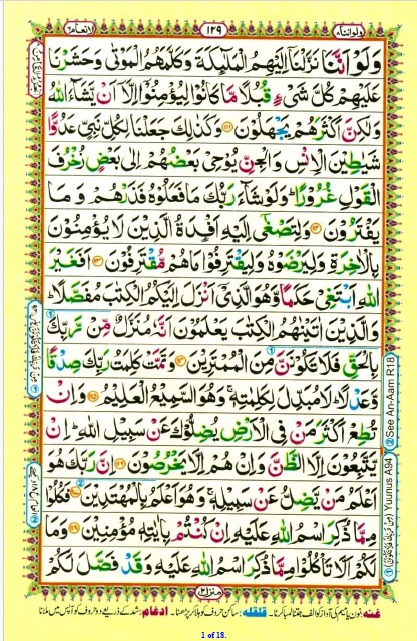 ولواننا ٨
١٢٩
الانعام ٦
وَلَوْ اَنَّنَا نَزَّلْنَاۤ اِلَيْهِمُ الْمَلٰٓئِكَةَ وَكَلَّمَهُمُ الْمَوْتٰى وَحَشَرْنَا
عَلَيْهِمْ كُلَّ شَىْءٍ قُبُلًا مَّا كَانُوْا لِيُؤْمِنُوْۤا اِلَّاۤ اَنْ يَّشَآءَ اللّٰهُ
وَلٰكِنَّ اَكْثَرَهُمْ يَجْهَلُوْنَ ۝١١١ وَكَذٰلِكَ جَعَلْنَا لِكُلِّ نَبِىٍّ عَدُوًّا
شَيٰطِيْنَ الْاِنْسِ وَالْجِنِّ يُوْحِىْ بَعْضُهُمْ اِلٰى بَعْضٍ زُخْرُفَ
الْقَوْلِ غُرُوْرًا ؕ وَلَوْ شَآءَ رَبُّكَ مَا فَعَلُوْهُ فَذَرْهُمْ وَمَا
يَفْتَرُوْنَ ۝١١٢ وَلِتَصْغٰۤى اِلَيْهِ اَفْـِٕدَةُ الَّذِيْنَ لَا يُؤْمِنُوْنَ
بِالْاٰخِرَةِ وَلِيَرْضَوْهُ وَلِيَقْتَرِفُوْا مَا هُمْ مُّقْتَرِفُوْنَ ۝١١٣ اَفَغَيْرَ
اللّٰهِ اَبْتَغِىْ حَكَمًا وَّهُوَ الَّذِىْۤ اَنْزَلَ اِلَيْكُمُ الْكِتٰبَ مُفَصَّلًا ؕ
وَالَّذِيْنَ اٰتَيْنٰهُمُ الْكِتٰبَ يَعْلَمُوْنَ اَنَّهٗ مُنَزَّلٌ مِّنْ رَّبِّكَ
بِالْحَقِّ فَلَا تَكُوْنَنَّ مِنَ الْمُمْتَرِيْنَ ۝١١٤ وَتَمَّتْ كَلِمَتُ رَبِّكَ صِدْقًا
وَّعَدْلًا ؕ لَا مُبَدِّلَ لِكَلِمٰتِهٖ ۚ وَهُوَ السَّمِيْعُ الْعَلِيْمُ ۝١١٥ وَاِنْ
تُطِعْ اَكْثَرَ مَنْ فِى الْاَرْضِ يُضِلُّوْكَ عَنْ سَبِيْلِ اللّٰهِ ؕ اِنْ
يَّتَّبِعُوْنَ اِلَّا الظَّنَّ وَاِنْ هُمْ اِلَّا يَخْرُصُوْنَ ۝١١٦ اِنَّ رَبَّكَ هُوَ
اَعْلَمُ مَنْ يَّضِلُّ عَنْ سَبِيْلِهٖ ۚ وَهُوَ اَعْلَمُ بِالْمُهْتَدِيْنَ ۝١١٧ فَكُلُوْا
مِمَّا ذُكِرَ اسْمُ اللّٰهِ عَلَيْهِ اِنْ كُنْتُمْ بِاٰيٰتِهٖ مُؤْمِنِيْنَ ۝١١٨ وَمَا
لَكُمْ اَلَّا تَاْكُلُوْا مِمَّا ذُكِرَ اسْمُ اللّٰهِ عَلَيْهِ وَقَدْ فَصَّلَ لَكُمْ
② See An-Aam R18
① Yuunus A94
منزل ٢
غنه: نون یا میم کی آواز کو الف جتنا لمبا کرنا۔ قلقله: ساکن حروف کو ہلا کر پڑھنا۔ ادغام: شد کے ذریعے دو حروف کو آپس میں ملانا
1 of 18.